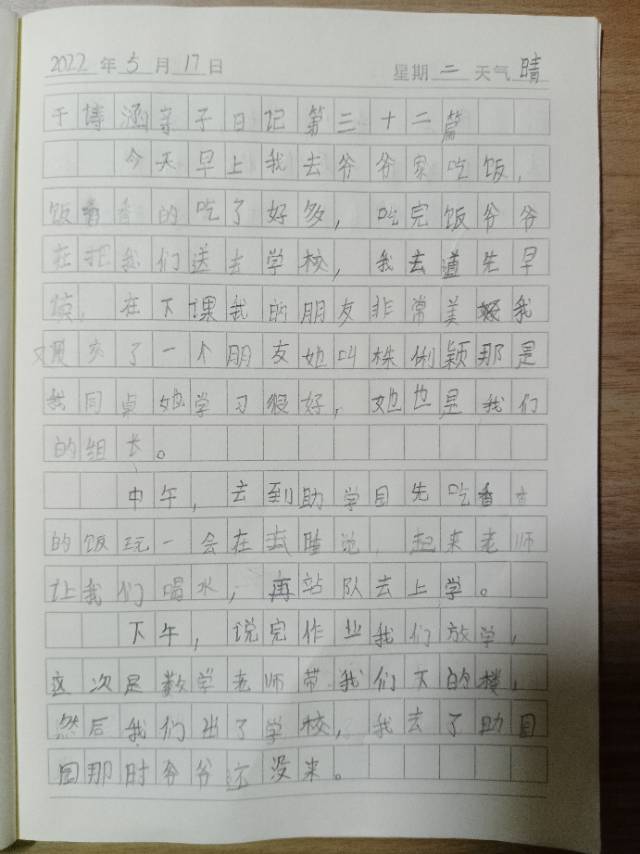 2022年5月17日 星期二 天气晴
于博涵亲子日记第三十二篇
今天早上我去爷爷家吃饭，
饭香香的吃了好多，吃完饭爷爷
在把我们送去学校，我去道先早
饭，在下课我的朋友非常美我
又交了一个朋友她叫株俐颖那是
我同桌她学习很好，她也是我们
的组长。
中午，去到助学园先吃香香
的饭玩一会在去睡觉，起来老师
让我们喝水，再站队去上学。
下午，说完作业我们放学，
这次是数学老师带我们下的楼，
然后我们出了学校，我去了助园
园那时爷爷还没来。